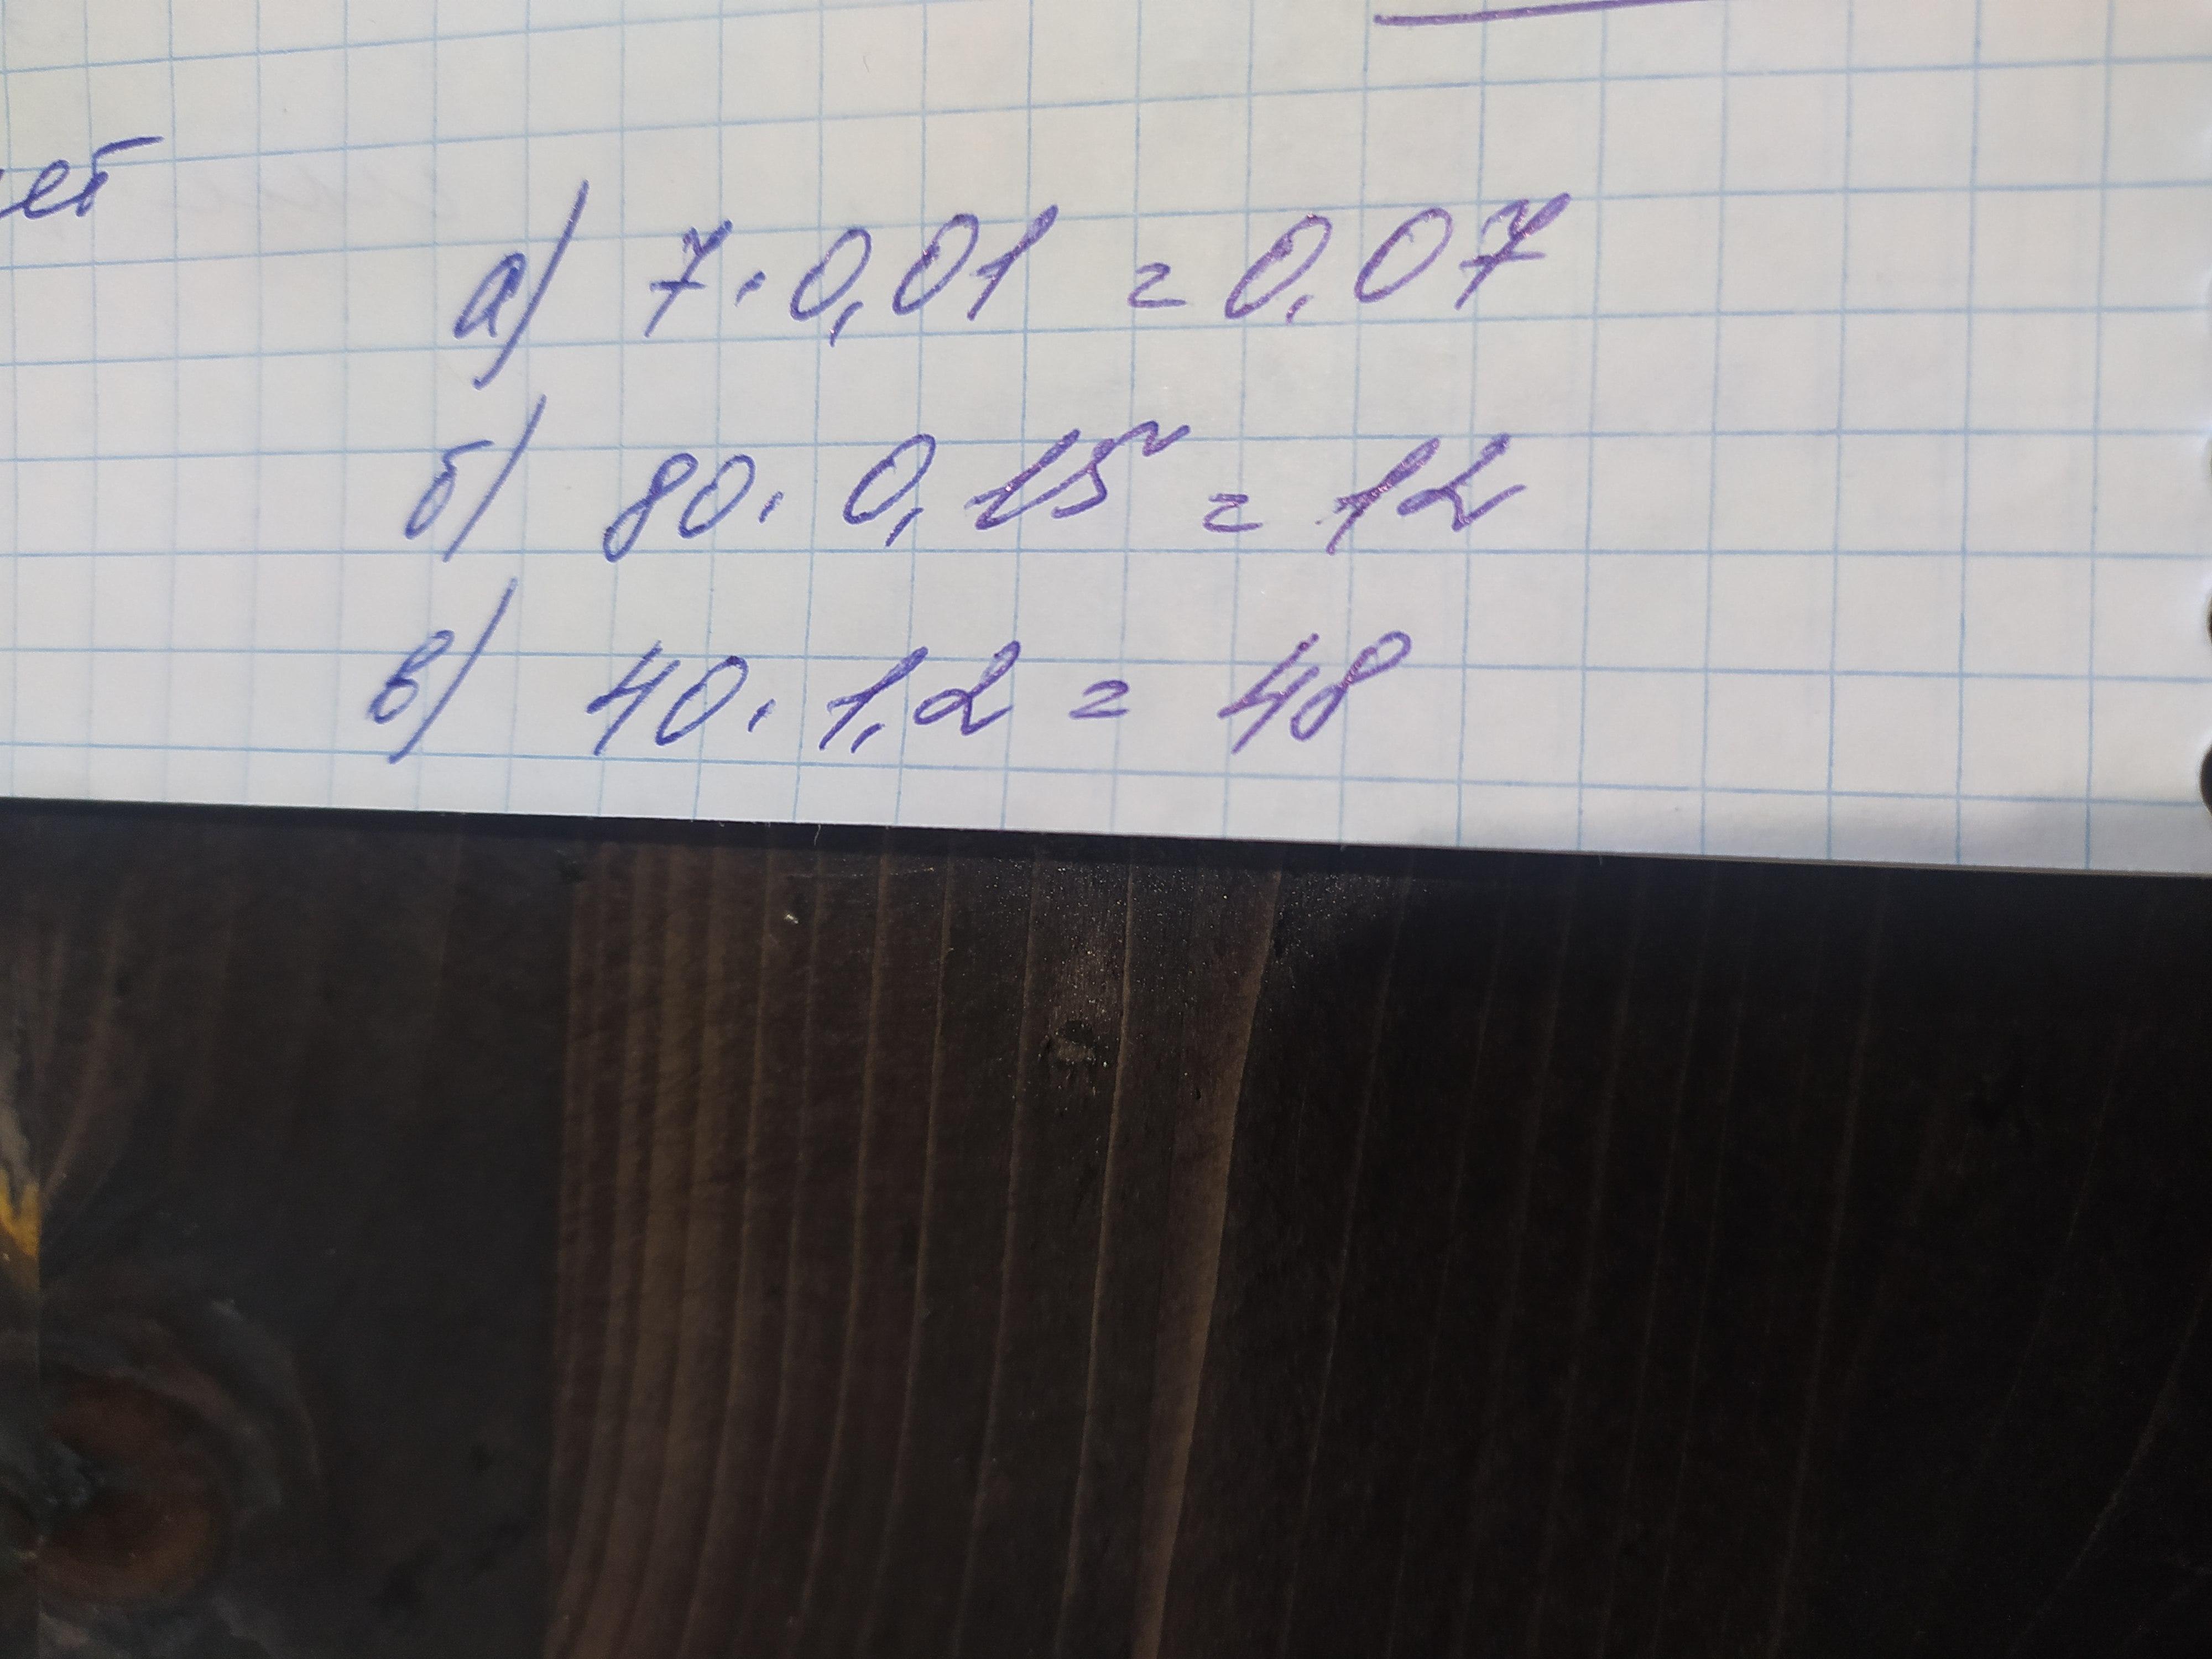 а) 7 · 0,01 = 0,07
б) 80 · 0,15 = 12
в) 40 · 1,2 = 48